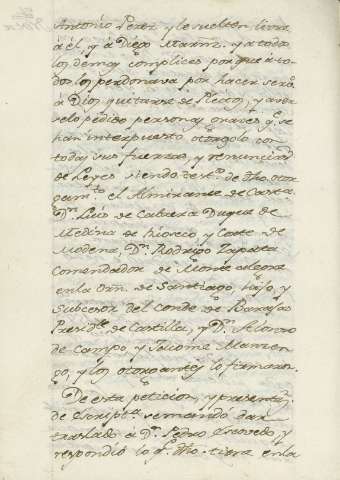 Antonio Perez, y le suelten libre
à él, y à Diego Martinz. y a todos
los demas complices porque à to-
dos los perdonava por hacer servo.
à Dios quitarse de Pleitos, y aver-
selo pedido personas graves q. se
han interpuesto otorgolo con
todas sus fuerzas, y renunciaon.
de Leyes siendo test.os de dho otor-
gam.to el Almirante de Casta.
Dn. Luis de Cabrera Duque de
Medina de Rioseco y Conte de
Modena, Dn. Rodrigo Zapata
Comendador de Monte alegre
en la Orn. de Santiago, hijo, y
Subcesor del Conde de Barajas
Presid.te de Castilla, y Dn. Alonso
de Campo y Jacome Maren-
go, y los otorgantes lo firmaron.
De esta peticion, y presentn.
de Escript.a se mandó dar
traslado à Dn. Pedro Escovedo, y
respondió lo q. dho. tiene en la